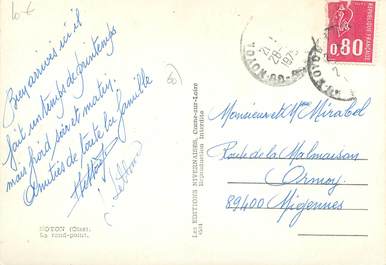 10 €
Bien arrivés ici il
fait un temps de printemps
mais froid soir et matin.
Amitiés de toute la famille
NOYON (Oise)
Le rond-point.
Les EDITIONS NIVERNAISES, Cosne-sur-Loire
Reproduction Interdite
60-NOYON
REPUBLIQUE FRANÇAISE
0,80
NOYON
Monsieur et Mme Mirabel
Route de la Malmaison
Ormoy
89400 Migennes